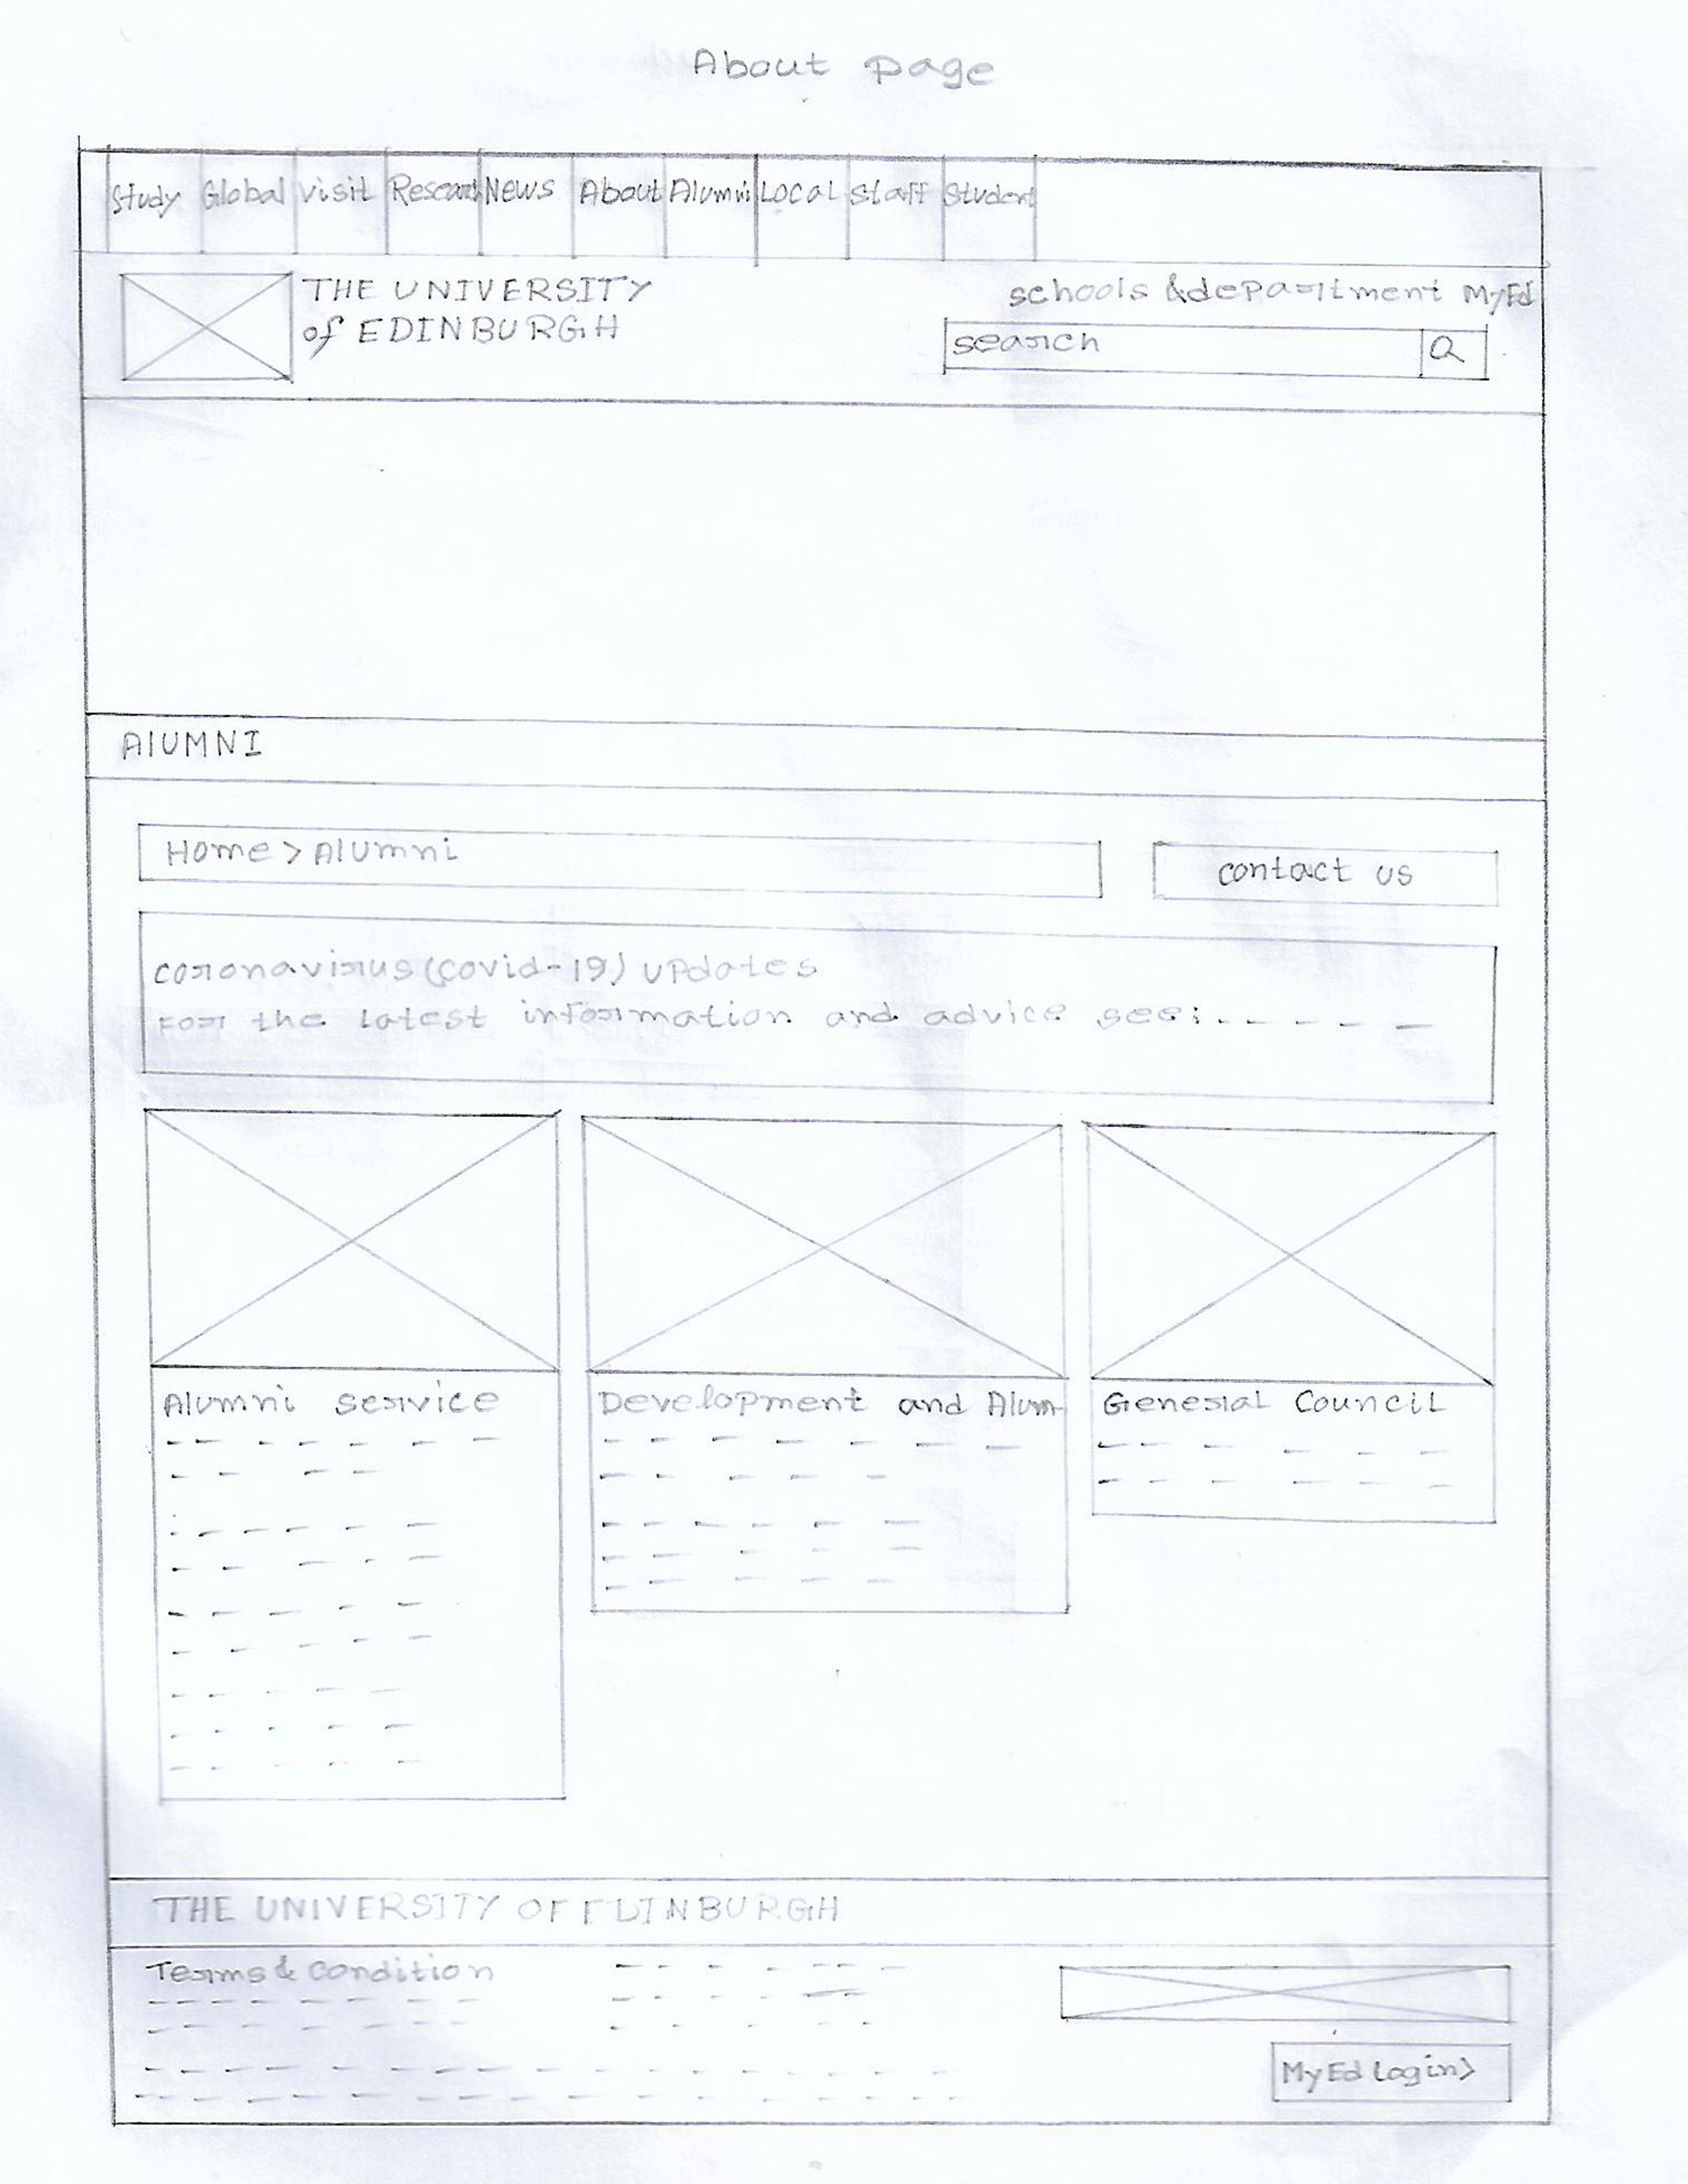 About page
Study Global visit Research News About Alumni Local staff Student
THE UNIVERSITY
of EDINBURGH
schools & department MyEd
search
AlUMNI
Home > Alumni
contact us
coronavirus (covid-19) updates
For the latest information and advice see:
Alumni service
Development and Alum
General Council
THE UNIVERSITY OF EDINBURGH
Terms & Condition
MyEd Login >